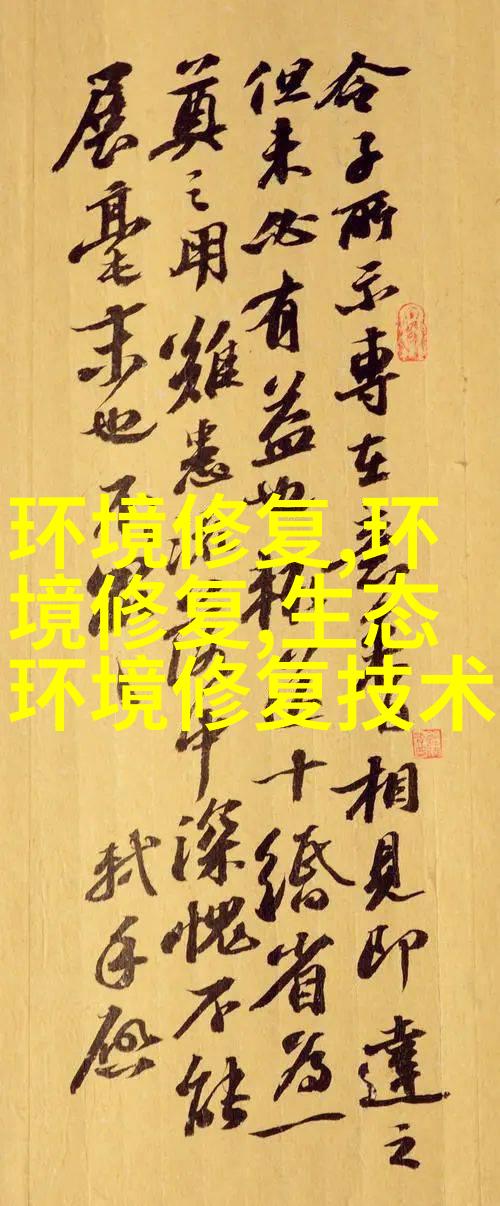 子所示專在意相見即達之
但未必有益也十緡省為一
奠之用患落中深愧不能
展毫末也不
軾手啓
环境修复,环
境修复,生态
环境修复技术